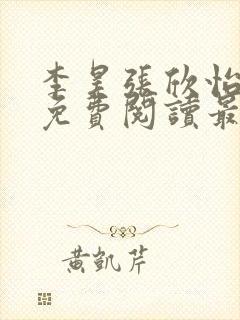 李昊張欣怡
免費閱讀最
黃凱芹